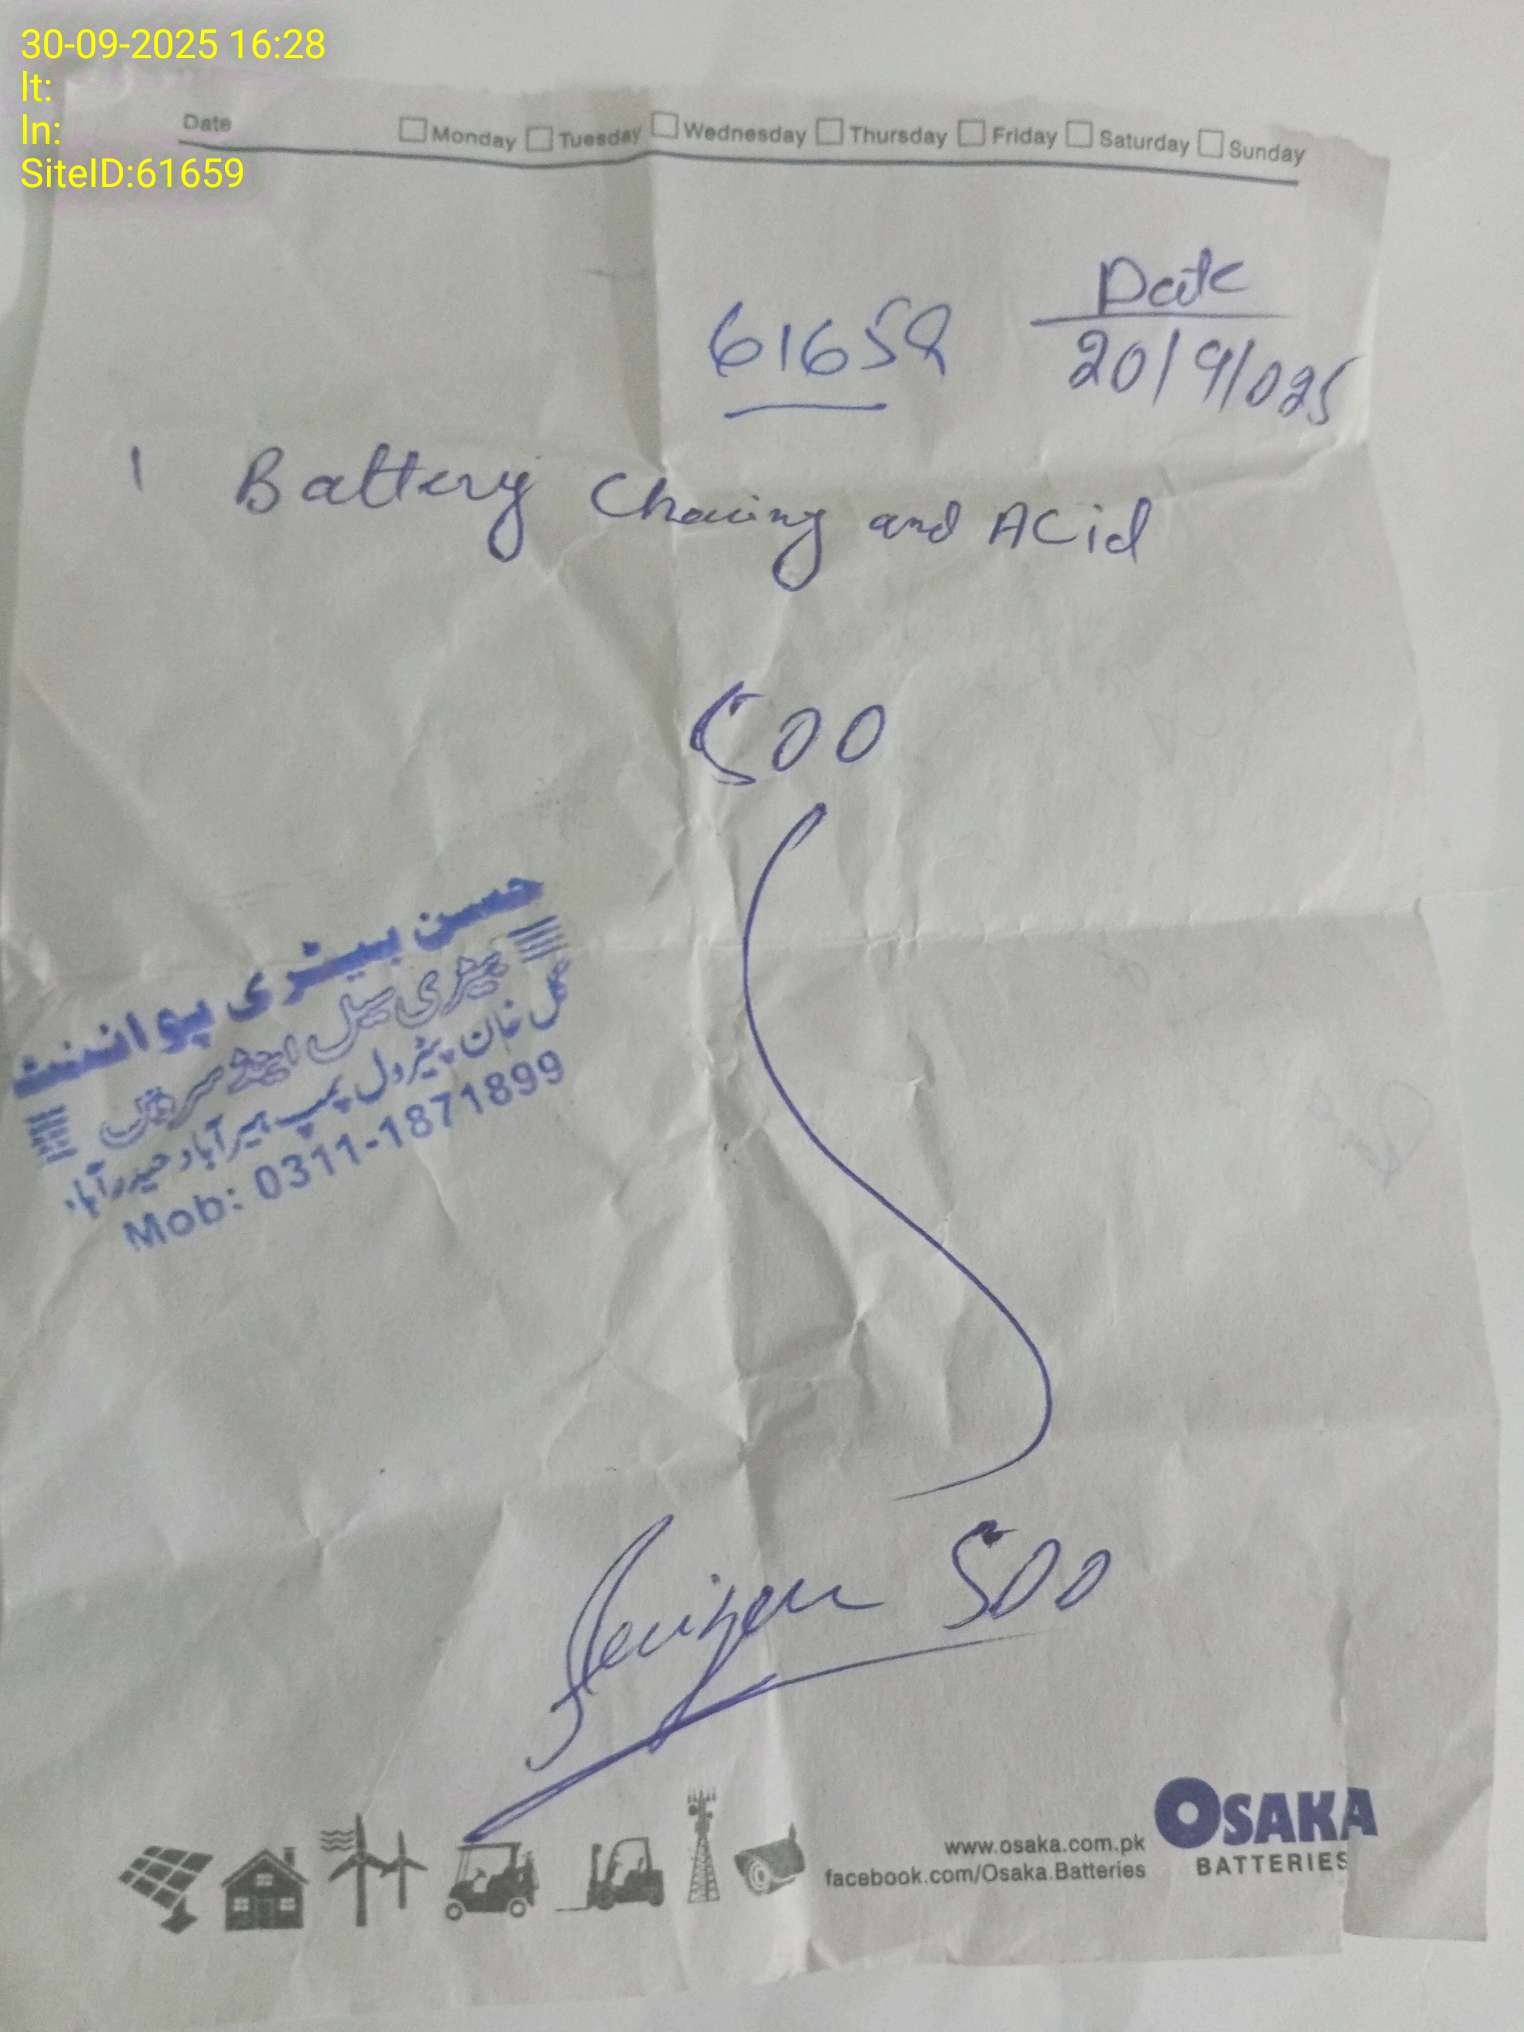 30-09-2025 16:28
lt:
ln:
SiteID:61659
Date Monday Tuesday Wednesday Thursday Friday Saturday Sunday
61659
Date
20/9/025
1 Battery Charing and Acid
500
حسن بیٹری پوائنٹ
بیٹری سیل اینڈ سروس
گل خان پیٹرول پمپ ہیرآباد حیدرآباد
Mob: 0311-1871899
500
www.osaka.com.pk
facebook.com/Osaka.Batteries
OSAKA
BATTERIES